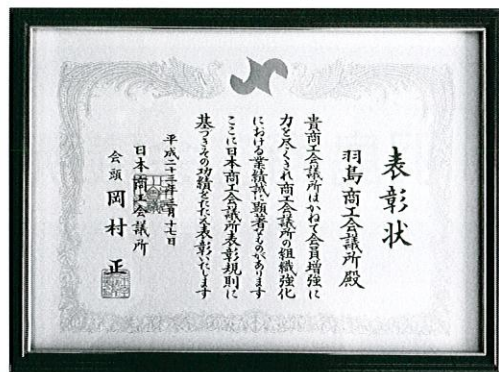 表彰状
羽島商工会議所殿
貴商工会議所はかねて会員増強に
力を尽くされ商工会議所の組織強化
における業績誠に顕著なものがあります
ここに日本商工会議所表彰規則に
基づきその功績をたたえ表彰いたします
平成二十三年三月十七日
日本商工会議所
会頭 岡村 正